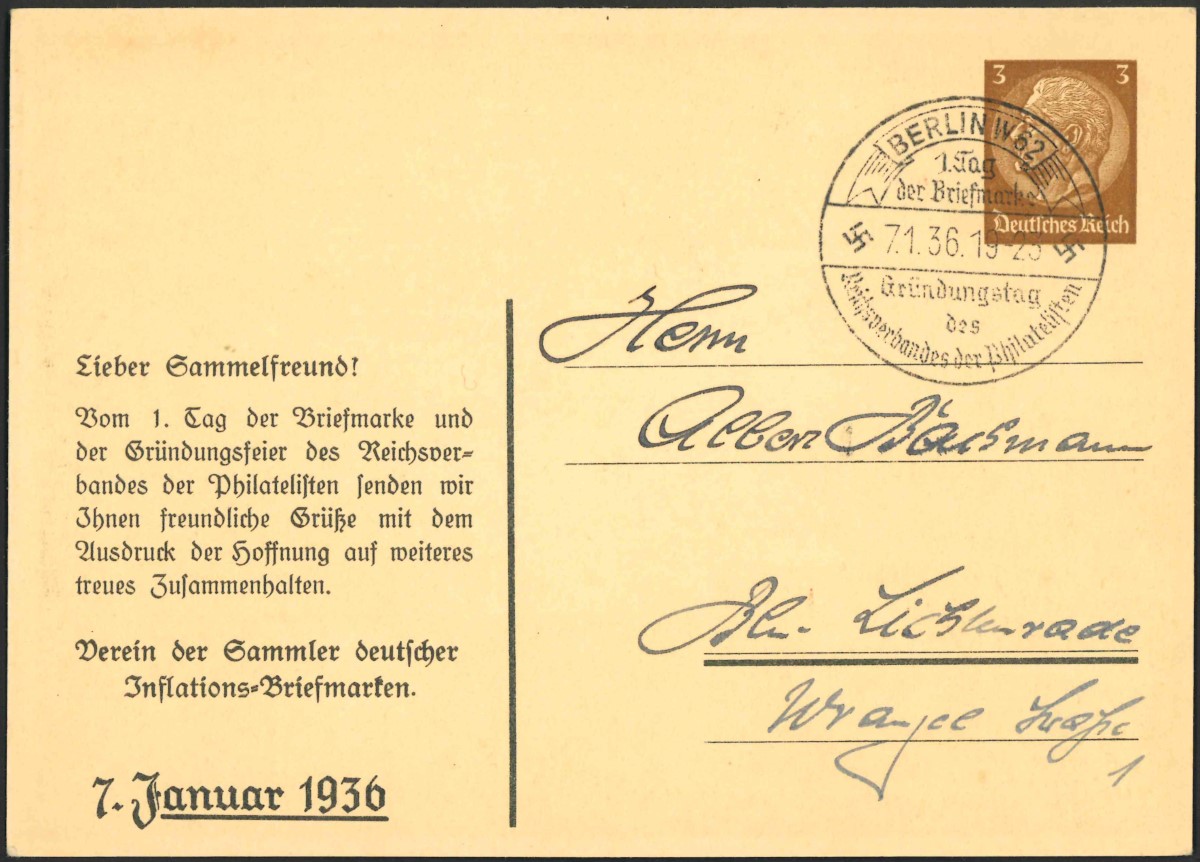 3 3
Deutsches Reich
BERLIN W 62
1. Tag
der Briefmarke
7.1.36.19-23
Gründungstag
des
Reichsverbandes der Philatelisten
Herrn
Albert Bachmann
Bln. Lichtenrade
Wrangelstraße
1
Lieber Sammelfreund!
Vom 1. Tag der Briefmarke und
der Gründungsfeier des Reichsver-
bandes der Philatelisten senden wir
Ihnen freundliche Grüße mit dem
Ausdruck der Hoffnung auf weiteres
treues Zusammenhalten.
Verein der Sammler deutscher
Inflations-Briefmarken.
7. Januar 1936